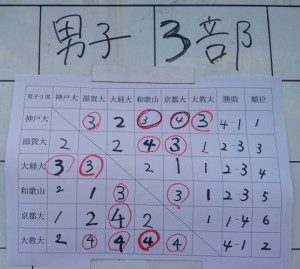 男子 3部
男子3部 神戸大 滋賀大 大経大 和歌山 京都大 大教大 勝敗 順位
神戸大 3 2 3 4 3 4-1 1
滋賀大 2 2 4 3 1 2-3 3
大経大 3 3 2 1 1 2-3 4
和歌山 2 1 3 3 1 2-3 5
京都大 1 2 4 2 1 1-4 6
大教大 2 4 4 4 4 4-1 2